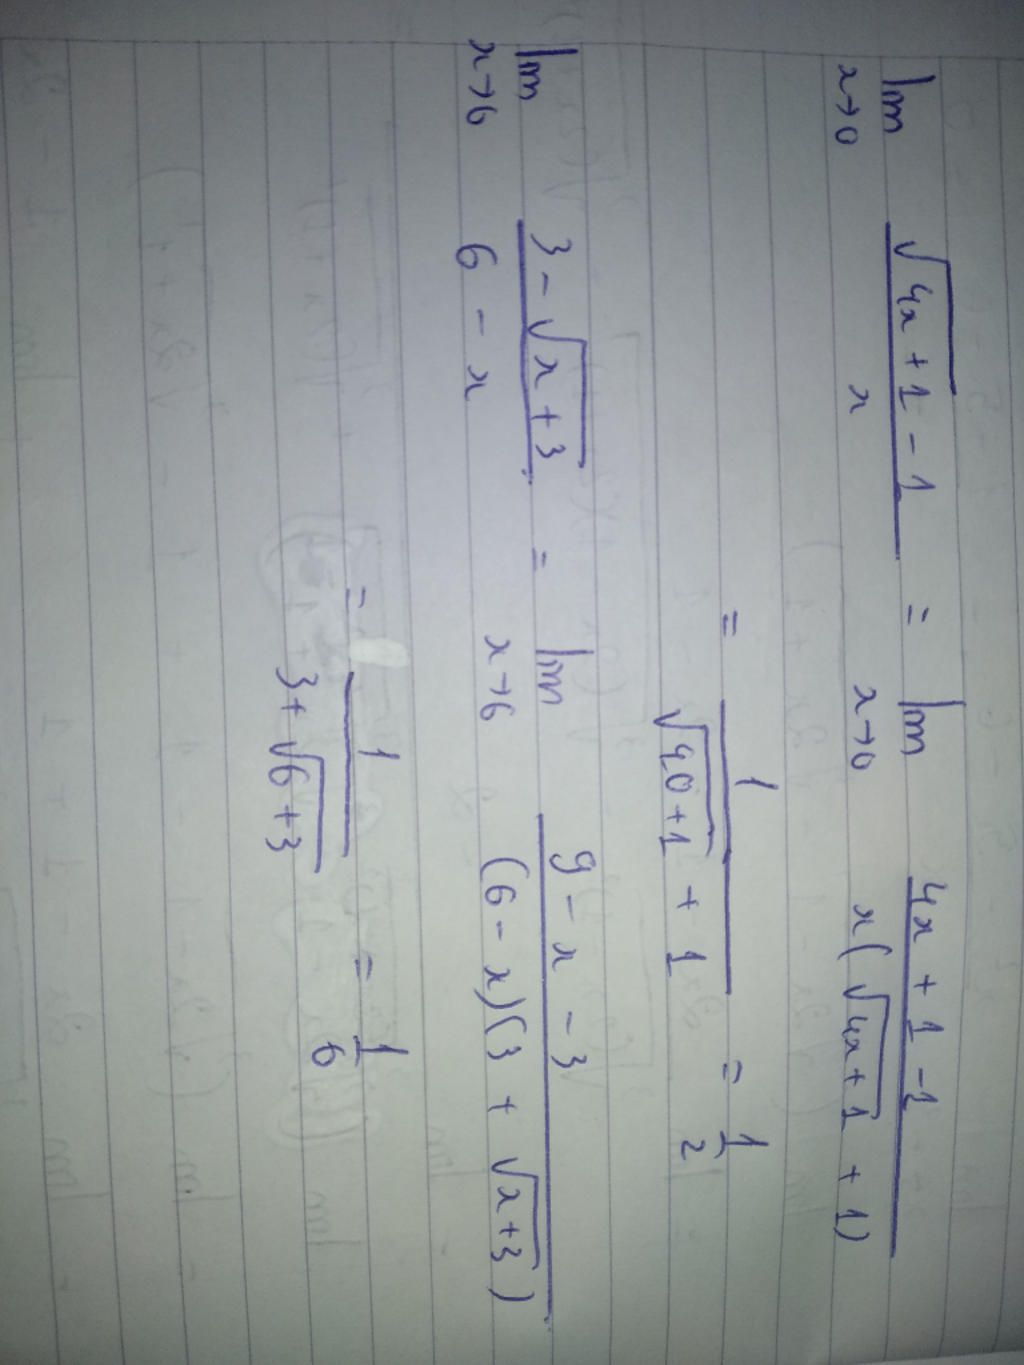 lim x→0 √(4x+1) - 1 / x = lim x→0 4x + 1 - 1 / x(√(4x+1) + 1)
= 1 / √(40+1) + 1 = 1/2
lim x→6 3 - √(x+3) / 6 - x = lim x→6 9 - x - 3 / (6 - x)(3 + √(x+3))
= 1 / 3+√(6+3) = 1/6